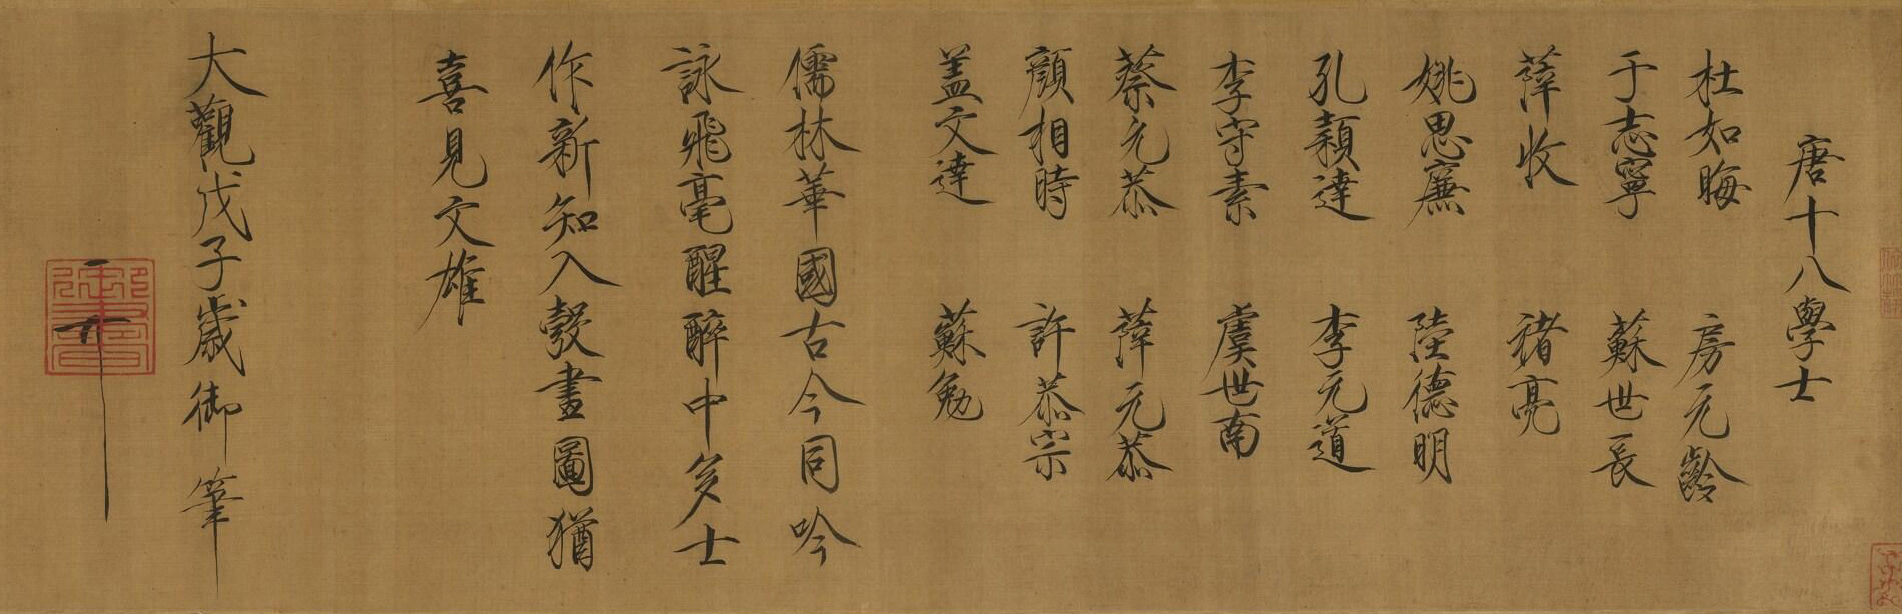 唐十八學士
杜如晦 房元齡
于志寧 蘇世長
薛收 褚亮
姚思廉 陸德明
孔穎達 李元道
李守素 虞世南
蔡元恭 薛元恭
顏相時 許恭宗
盖文達 蘇勉
儒林華國古今同吟
詠飛毫醒醉中多士
作新知入彀畫圖猶
喜見文雄
大觀戊子歲御筆